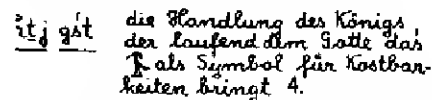 ỉtj gśt die Handlung des Königs,
der laufend dem Gotte das
als Symbol für Kostbar-
keiten bringt 4.